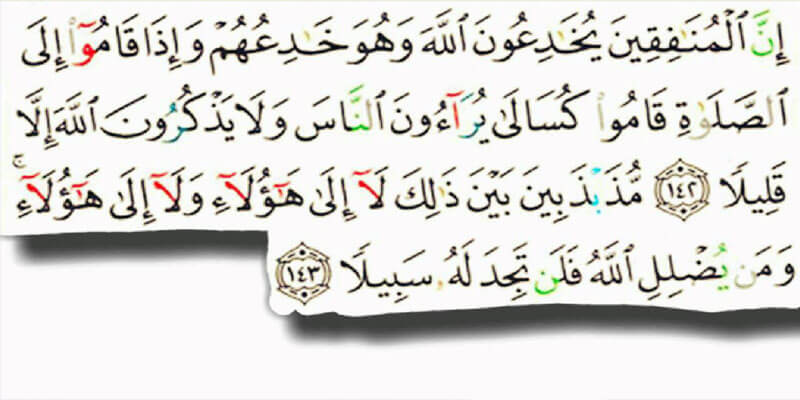 إِنَّ ٱلْمُنَٰفِقِينَ يُخَٰدِعُونَ ٱللَّهَ وَهُوَ خَٰدِعُهُمْ وَإِذَا قَامُوٓا۟ إِلَى
ٱلصَّلَوٰةِ قَامُوا۟ كُسَالَىٰ يُرَآءُونَ ٱلنَّاسَ وَلَا يَذْكُرُونَ ٱللَّهَ إِلَّا
قَلِيلًا ١٤٢ مُّذَبْذَبِينَ بَيْنَ ذَٰلِكَ لَآ إِلَىٰ هَٰٓؤُلَآءِ وَلَآ إِلَىٰ هَٰٓؤُلَآءِ ۚ
وَمَن يُضْلِلِ ٱللَّهُ فَلَن تَجِدَ لَهُۥ سَبِيلًا ١٤٣